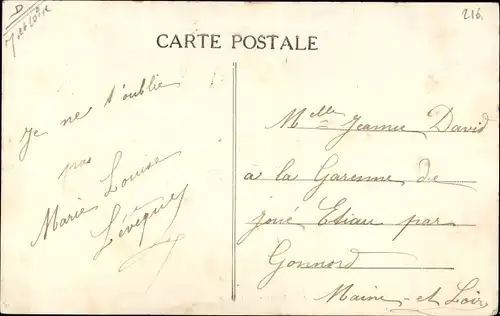 D
M et Loire
216.
CARTE POSTALE
Je ne t'oublie
pas
Marie Louise
Lévêque
Melle Jeanne David
à la Garenne de
joué Etiau par
Gonnord
Maine-et-Loire